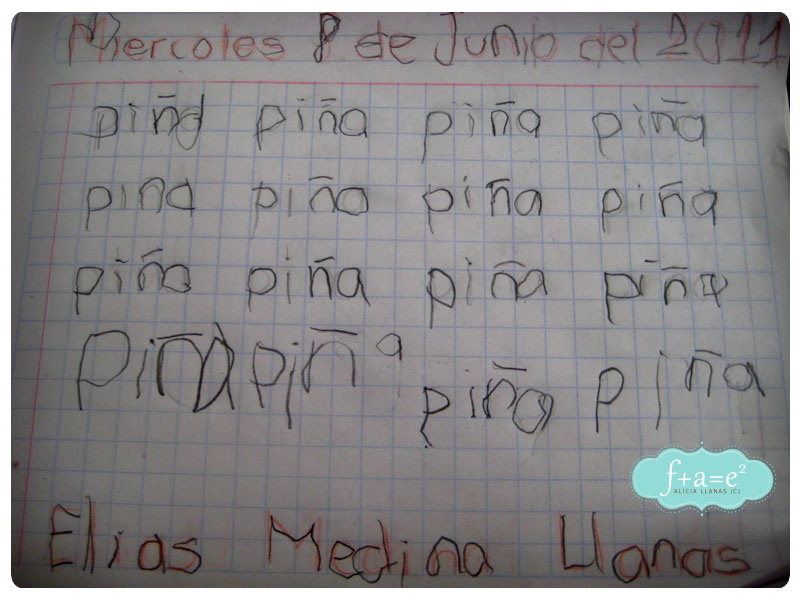 Miercoles 8 de Junio del 2011
piña piña piña piña
piña piña piña piña
piña piña piña piña
Piña piña piña piña
f+a=e²
ALICIA LLANAS (C)
Elias Medina Llanas